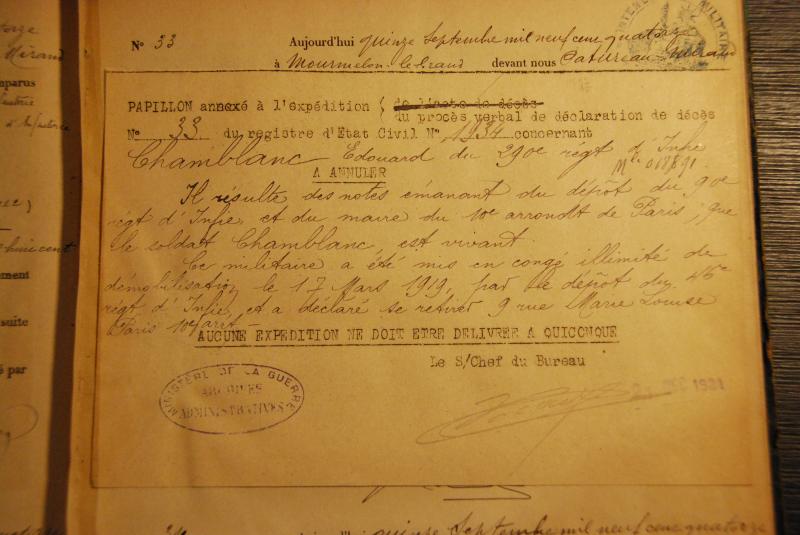 Nº 33 Aujourd'hui quinze Septembre mil neuf cent quatorze
à Mourmelon-le-Grand devant nous Catureau
PAPILLON annexé à l'expédition ( de l'acte de décès
du procès verbal de déclaration de décès
Nº 33 du registre d'Etat Civil Nº 1934 concernant
Chamblanc Edouard du 290e régt d'Infie
Mle 018891
A ANNULER
Il résulte des notes émanant du dépôt du 90e
régt d'Infie et du maire du 10e arrondt de Paris, que
le soldat Chamblanc, est vivant.
Ce militaire a été mis en congé illimité de
démobilisation le 17 Mars 1919, par le dépôt du 46e
régt d'Infie, et a déclaré se retirer 9 rue Marie Louise
Paris 10e arrt –
AUCUNE EXPEDITION NE DOIT ETRE DELIVREE A QUICONQUE
Le S/Chef du Bureau
MINISTÈRE DE LA GUERRE
ARCHIVES
ADMINISTRATIVES
DEC 1931
quinze Septembre mil neuf cent quatorze
mparus
ement
suite
é par